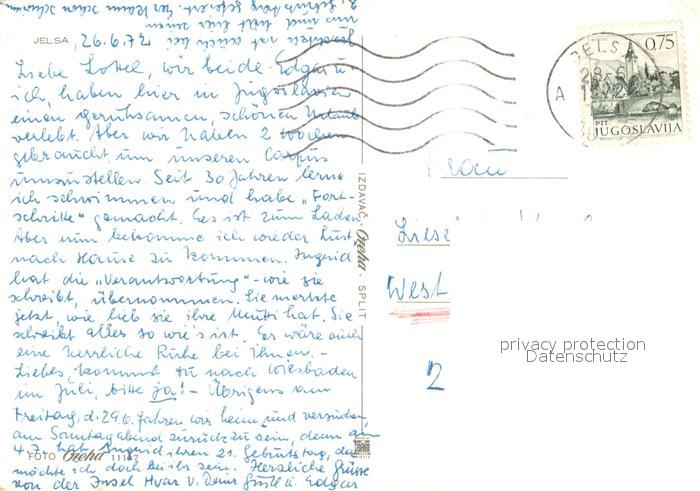 JELSA, 26.6.72
Liebe Lottel, wir beide Edgar u.
ich, haben hier in Jugoslavien
einen geruhsamen, schönen Urlaub
verlebt. Aber wir haben 2 Wochen
gebraucht um unseren Corpus
umzustellen. Seit 30 Jahren lerne
ich schwimmen und habe „Fort-
schritte" gemacht. Es ist zum Laden.
Aber nun bekomme ich wieder Lust,
nach Hause zu kommen. Ingrid
hat die „Verantwortung" - wie sie
schreibt, übernommen. Sie merkte
jetzt, wie lieb sie ihre Mutti hat. Sie
schreibt alles so wie's ist. Es wäre auch
eine herrliche Ruhe bei ihnen. -
Liebes, kommst du nach Wiesbaden
im Juli, bitte ja! - Übrigens am
Freitag, d. 29.6. fahren wir heim und versuchen,
am Sonntagabend zurück zu sein, denn am
4.7. hat Ingrid ihren 21. Geburtstag, da
möchte ich doch bei ihr sein. Herzliche Grüsse
von der Insel Hvar v. Deiner u. Edgar
FOTO Ozeha
IZDAVAČ, Ozeha - SPLIT
JELSA
28-6
A
0,75
PTT
JUGOSLAVIJA
Frau
Liese
West
2
privacy protection
Datenschutz